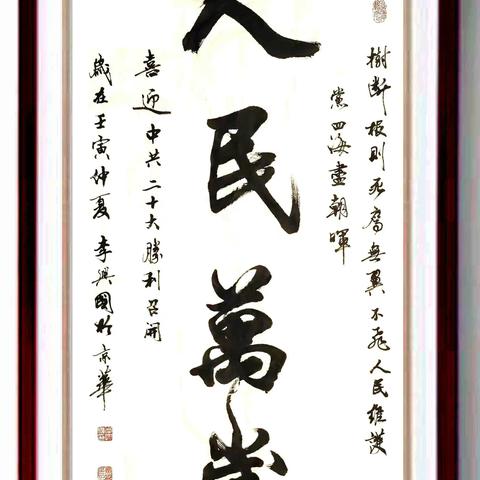 樹斷根則死無翼不飛人民維護
黨四海盡朝暉
人民萬歲
喜迎中共二十大勝利召開
歲在壬寅仲夏 李興國於京華